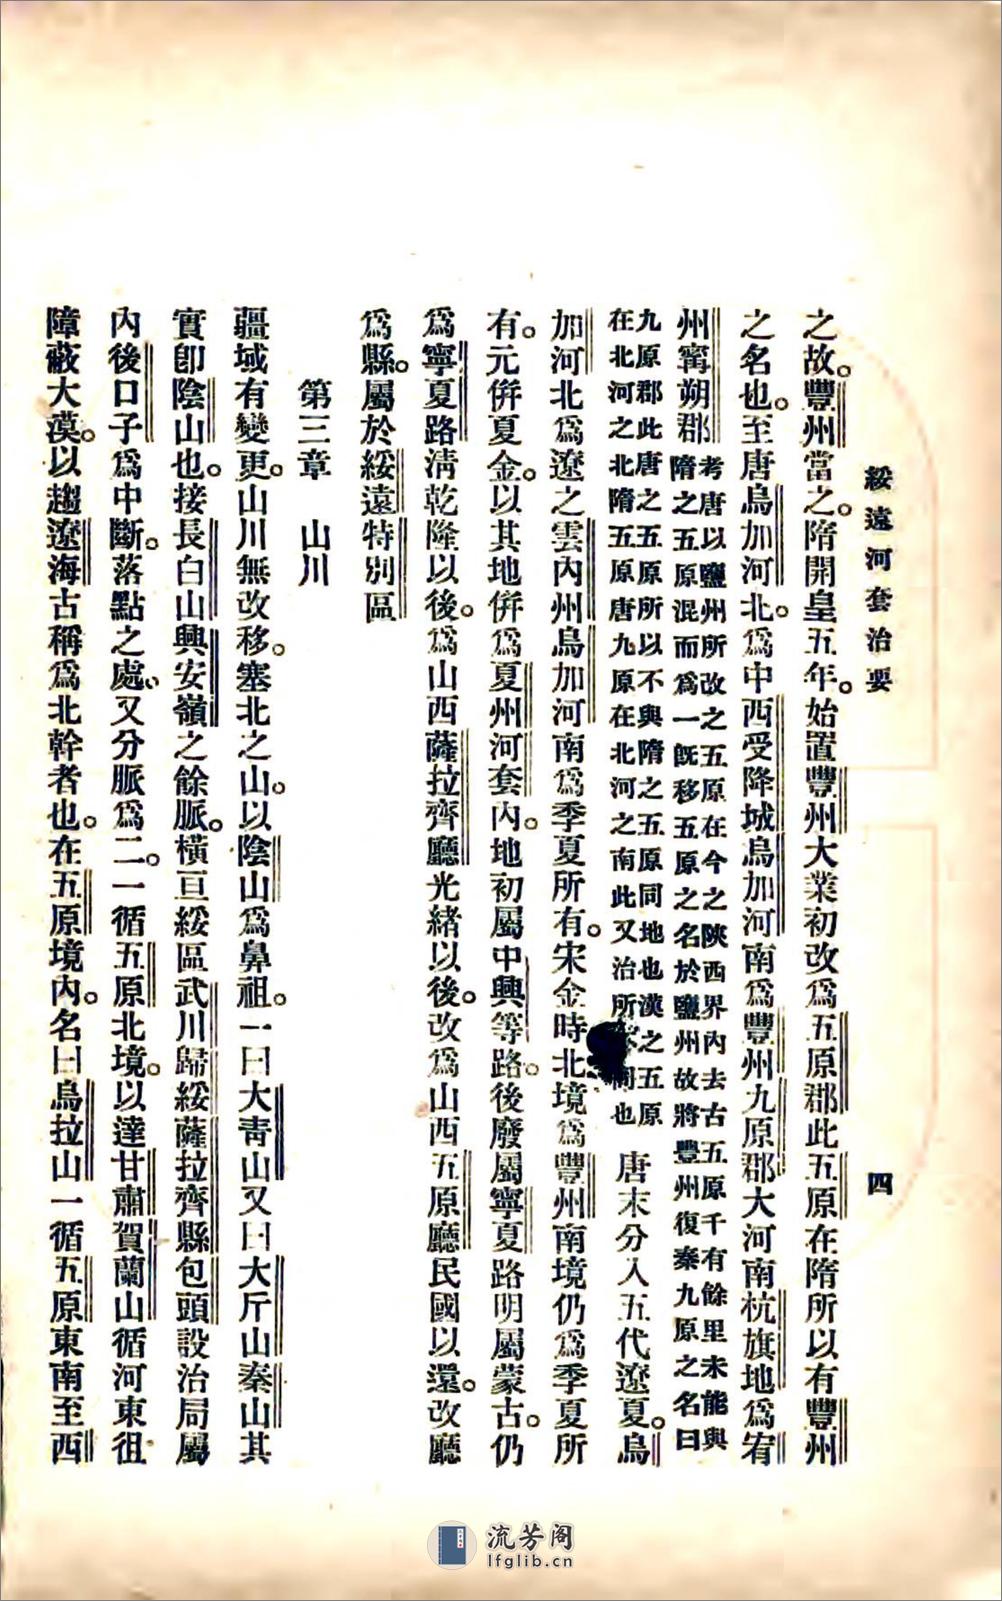 綏遠河套治要
四
之故。豐州當之。隋開皇五年。始置豐州大業初改爲五原郡此五原在隋所以有豐州
之名也。至唐烏加河北。爲中西受降城烏加河南爲豐州九原郡大河南杭旗地爲宥
州甯朔郡考唐以鹽州所改之五原在今之陝西界內去古五原千有餘里未能與
隋之五原混而爲一旣移五原之名於鹽州故將豐州復秦九原之名曰
九原郡此唐之五原所以不與隋之五原同地也漢之五原
在北河之北隋五原唐九原在北河之南此又治所也
唐末分入五代遼夏。烏
加河北爲遼之雲內州烏加河南爲季夏所有。宋金時北境爲豐州南境仍爲季夏所
有。元併夏金。以其地併爲夏州河套內。地初屬中興等路。後廢屬寧夏路明屬蒙古。仍
爲寧夏路淸乾隆以後。爲山西薩拉齊廳光緒以後。改爲山西五原廳民國以還。改廳
爲縣。屬於綏遠特別區
第三章 山川
疆域有變更。山川無改移。塞北之山。以陰山爲鼻祖。一曰大靑山又曰大斤山秦山其
實卽陰山也。接長白山興安嶺之餘脈。橫亘綏區武川歸綏薩拉齊縣包頭設治局屬
內後口子爲中斷。落點之處、又分脈爲二。一循五原北境。以達甘肅賀蘭山循河東徂
障蔽大漠。以趨遼海古稱爲北幹者也。在五原境內。名曰烏拉山一循五原東南至西
流芳阁
lfglib.cn